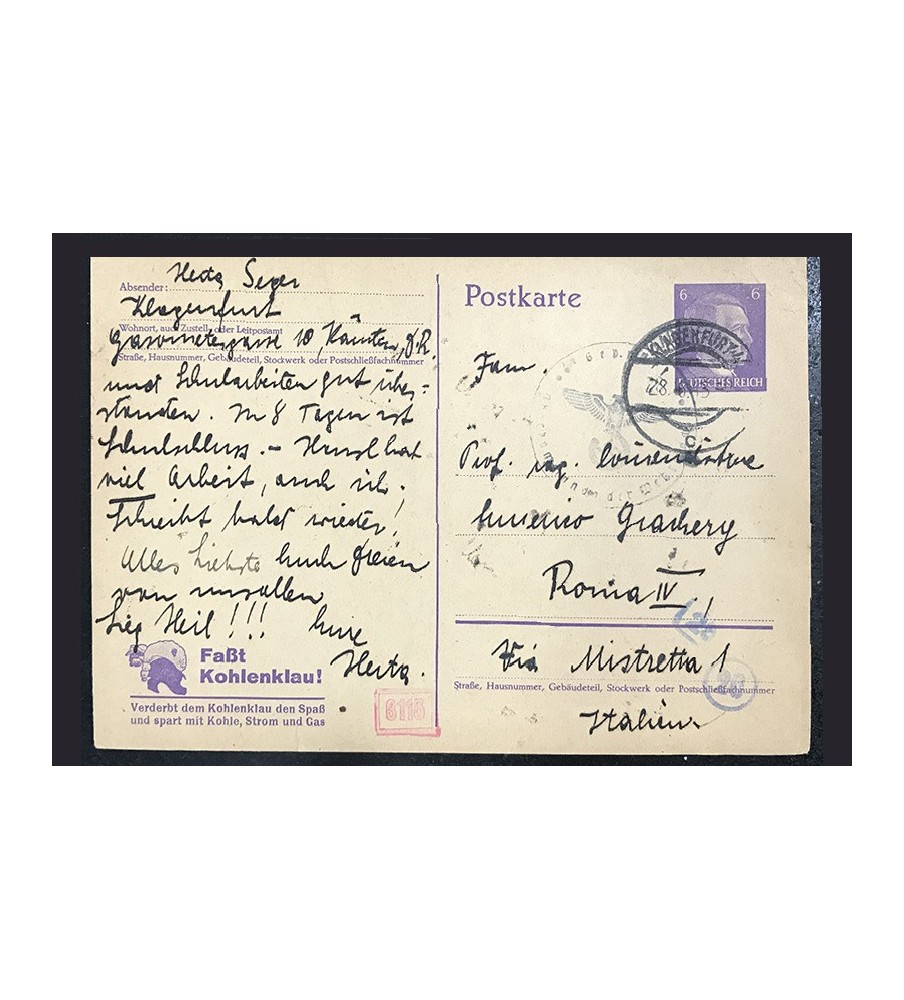 Absender: Herta Seger
Klagenfurt
Wohnort, auch Zustell- oder Leitpostamt
Gasometergasse 10, Kärnten, D.R.
Straße, Hausnummer, Gebäudeteil, Stockwerk oder Postschließfachnummer
und Schularbeiten gut über-
standen. In 8 Tagen ist
Schulschluss. – Hansl hat
viel Arbeit, auch ich.
Schreibt bald wieder!
Alles Liebste
von uns allen
Sieg Heil!!! Eure
Herta.
Faßt
Kohlenklau!
Verderbt dem Kohlenklau den Spaß
und spart mit Kohle, Strom und Gas
8115
Postkarte
6 6
DEUTSCHES REICH
KLAGENFURT
28.
c
Fam.
Prof. ing.
Roma IV!
Via Mistretta 1
Straße, Hausnummer, Gebäudeteil, Stockwerk oder Postschließfachnummer
Italien.
26